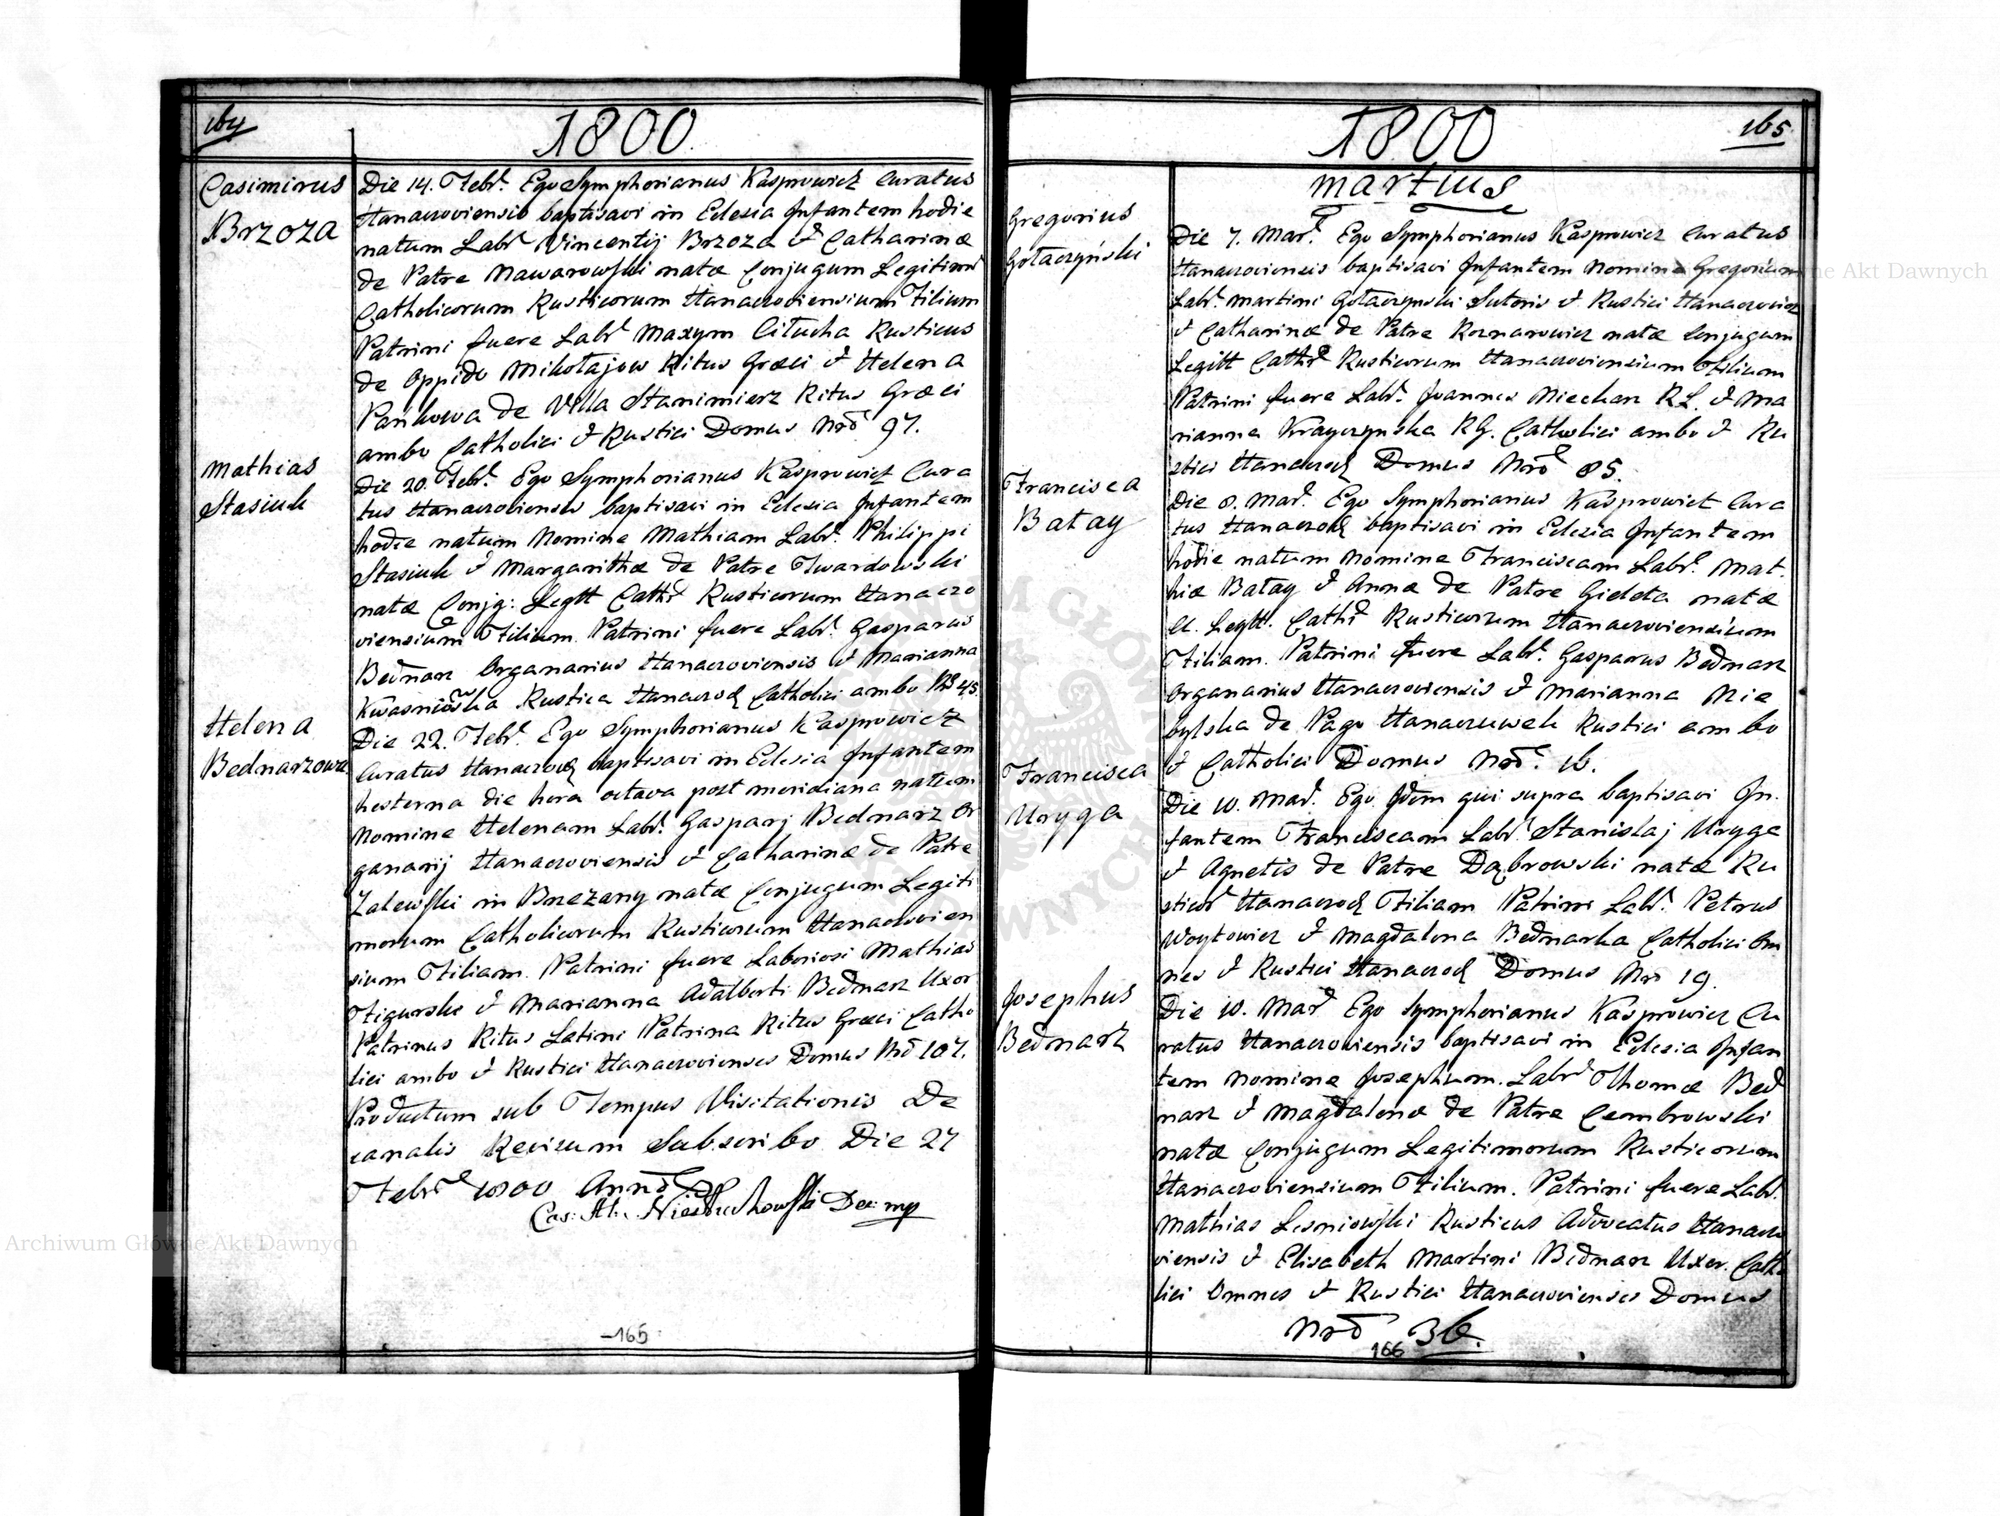 164
1800
Casimirus
Brzoza
Die 14. Febr. Ego Symphorianus Kasprowicz Curatus
Hanaczoviensis baptisavi in Eclesia Infantem hodie
natum Labr. Vincentij Brzoza et Catharinæ
de Patre Nawarowski natæ Conjugum Legitimr
Catholicorum Rusticorum Hanaczoviensium Filium
Patrini fuere Labr. Maxym Citucha Rusticus
de Oppido Mikołajow Ritus Græci et Helena
Pańkowa de Villa Stanimierz Ritus Græci
ambo Catholici et Rustici Domus Nrō 97.
Mathias
Stasiuk
Die 20. Febr. Ego Symphorianus Kasprowicz Cura
tus Hanaczoviensis baptisavi in Eclesia Infantem
hodie natum Nomine Mathiam Labr. Philippi
Stasiuk et Margarithæ de Patre Twardowski
natæ Conjg: Legtt Cathr Rusticorum Hanaczo
viensium Filium. Patrini fuere Labr. Gasparus
Bednarz Organarius Hanaczoviensis et Marianna
Kwasniowska Rustica Hanaczov Catholici ambo Nō 45.
Helena
Bednarzowa
Die 22. Febr. Ego Symphorianus Kasprowicz
Curatus Hanaczov baptisavi in Eclesia Infantem
hesterna die hora octava post meridiana natam
Nomine Helenam Labr. Gasparj Bednarz Or
ganarij Hanaczoviensis et Catharinæ de Patre
Zalewski in Brzeżany natæ Conjugum Legiti
morum Catholicorum Rusticorum Hanaczovien
sium Filiam. Patrini fuere Laboriosi Mathias
Figurski et Marianna Adalberti Bednarz Uxor
Patrinus Ritus Latini Patrina Ritus Græci Catho
lici ambo et Rustici Hanaczovienses Domus Nrō 107.
Productum sub Tempus Visitationis De
canalis Revisum Subscribo Die 27
Febr 1800 Annō
Dec: mp
-165
1800
165
Martius
Gregorius
Gołaczyński
Die 7. Mar. Ego Symphorianus Kasprowicz Curatus
Hanaczoviensis baptisavi Infantem Nomine Gregorium
Labr. Martini Gołaczynski Sutoris et Rustici Hanaczovien
et Catharinæ de Patre Koznarowicz natæ Conjugum
Legitt Cathr Rusticorum Hanaczoviensium Filium
Patrini fuere Labr. Joannes Miechar RL. et Ma
rianna Krayczynska RG. Catholici ambo et Ru
stici Hanaczov Domus Nrō 85.
Francisca
Batay
Die 8. Mar. Ego Symphorianus Kasprowicz Cura
tus Hanaczov baptisavi in Eclesia Infantem
hodie natum Nomine Franciscam Labr. Mat.
hiæ Batay et Annæ de Patre Gieleta natæ
C. Legtt. Cathr Rusticorum Hanaczoviensium
Filiam. Patrini fuere Labr. Gasparus Bednarz
Organarius Hanaczoviensis et Marianna Nie
bylska de Pago Hanaczuwek Rustici ambo
et Catholici Domus Nrō. 16.
Francisca
Uryga
Die 10. Mar. Ego Idem qui supra baptisavi In.
fantem Franciscam Labr. Stanislaj Uryga
et Agnetis de Patre Dąbrowski natæ Ru
sticor Hanaczov Filiam Patrini Labr. Petrus
Woytowicz et Magdalena Bednarka Catholici Om
nes et Rustici Hanaczov Domus Nrō 19.
Josephus
Bednarz
Die 10. Mar Ego Symphorianus Kasprowicz Cu
ratus Hanaczoviensis baptisavi in Eclesia Infan
tem Nomine Josephum. Labr Thomæ Bed
narz et Magdalenæ de Patre Cembrowski
natæ Conjugum Legitimorum Rusticorum
Hanaczoviensium Filium. Patrini fuere Labr.
Mathias Lesniowski Rusticus Advocatus Hanaczo
viensis et Elisabeth Martini Bednarz Uxor. Catho
lici Omnes et Rustici Hanaczovienses Domus
Nrō 36.
166
Archiwum Główne Akt Dawnych
Archiwum Główne Akt Dawnych
ARCHIWUM GŁÓWNE AKT DAWNYCH